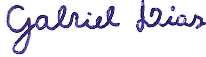 Gabriel Dias